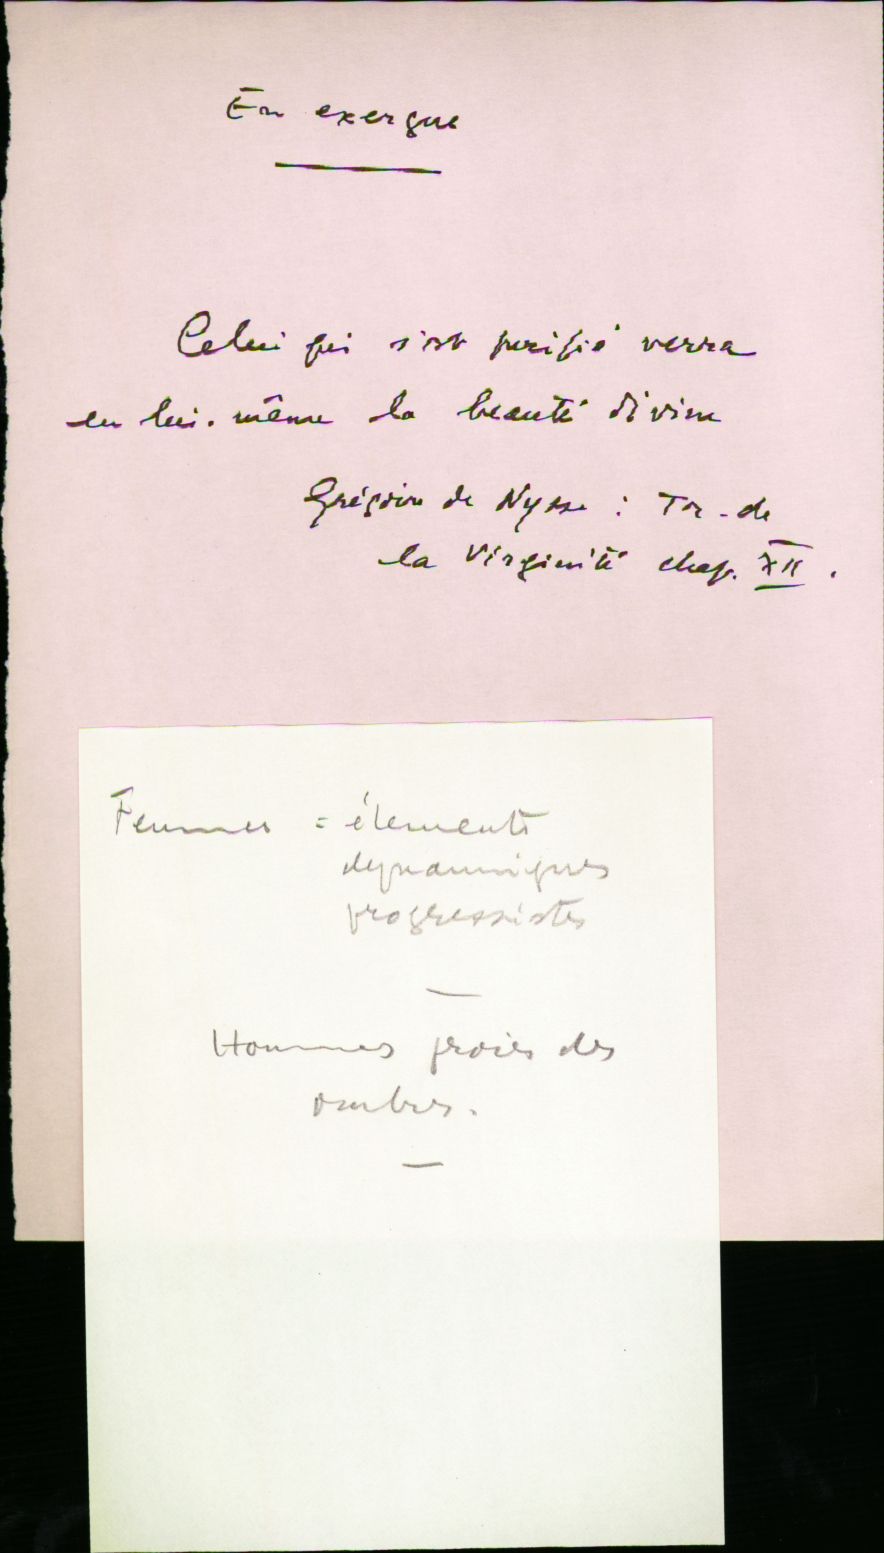 En exergue
Celui qui s'est purifié verra
en lui-même la beauté divine
Grégoire de Nysse : Tr. de
la Virginité chap. XII.
Femmes = éléments
dynamiques
progressistes
Hommes proies des
ombres.